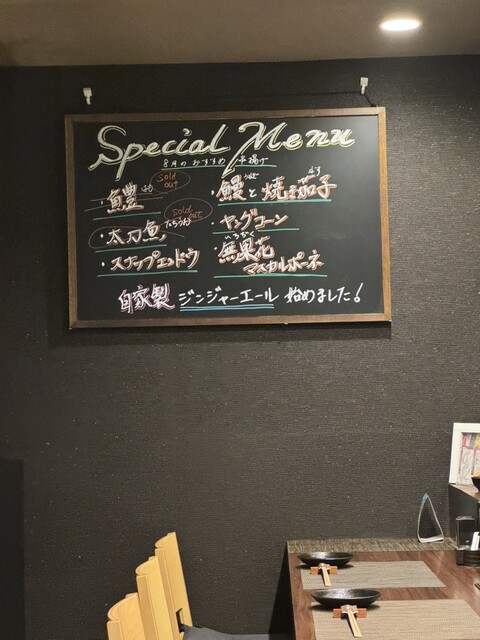 Special Menu
8月のおすすめ 串揚げ
・鱧 はも Sold out
・太刀魚 たちうお Sold out
・スナップエンドウ
・鰻と焼き茄子 うなぎ
・ヤングコーン
・無果花 いちぢく
マスカルポーネ
自家製 ジンジャーエール 始めました!